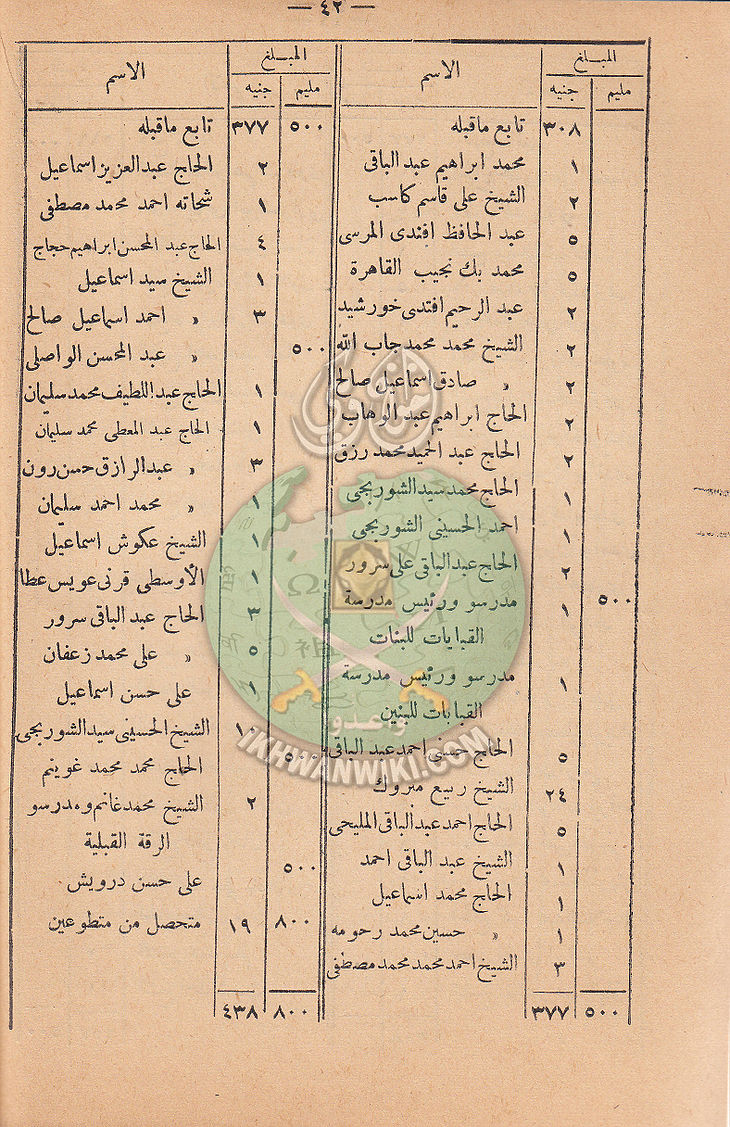 — ٤٢ —
المبلغ الاسم
مليم جنيه
٣٠٨ تابع ماقبله
١ محمد ابراهيم عبد الباقى
٢ الشيخ على قاسم كاسب
٥ عبد الحافظ افندى المرسى
٥ محمد بك نجيب القاهرة
٢ عبد الرحيم افندى خورشيد
٢ الشيخ محمد محمد جاب الله
٢ » صادق اسماعيل صالح
٢ الحاج ابراهيم عبد الوهاب
٢ الحاج عبد الحميد محمد رزق
١ الحاج محمد سيد الشوربجى
١ احمد الحسينى الشوربجى
٢ الحاج عبد الباقى على سرور
٥٠٠ ١ مدرسو ورئيس مدرسة
القبابات للبنات
١ مدرسو ورئيس مدرسة
القبابات للبنين
٥ الحاج حفنى احمد عبد الباقى
٢٤ الشيخ ربيع مبروك
٥ الحاج احمد عبد الباقى المليحى
١ الشيخ عبد الباقى احمد
١ الحاج محمد اسماعيل
١ » حسين محمد رحومه
٣ الشيخ احمد محمد محمد مصطفى
٥٠٠ ٣٧٧
المبلغ الاسم
مليم جنيه
٥٠٠ ٣٧٧ تابع ماقبله
٢ الحاج عبد العزيز اسماعيل
١ شحاته احمد محمد مصطفى
٤ الحاج عبد المحسن ابراهيم حجاج
١ الشيخ سيد اسماعيل
٣ » احمد اسماعيل صالح
٥٠٠ » عبد المحسن الواصلى
١ الحاج عبد اللطيف محمد سليمان
١ الحاج عبد المعطى محمد سليمان
٣ » عبد الرازق حسن رون
١ » محمد احمد سليمان
١ الشيخ عكوش اسماعيل
١ الأوسطى قرنى عويس عطا
٣ الحاج عبد الباقى سرور
٥ » على محمد زعفان
١ على حسن اسماعيل
١٠ الشيخ الحسينى سيد الشوربجى
٥٠٠ الحاج محمد محمد غوينم
٢ الشيخ محمد غانم ومدرسو
الرقة القبلية
٥٠٠ على حسن درويش
٨٠٠ ١٩ متحصل من متطوعين
٨٠٠ ٤٣٨
وأعدوا
IKHWANWIKI.COM